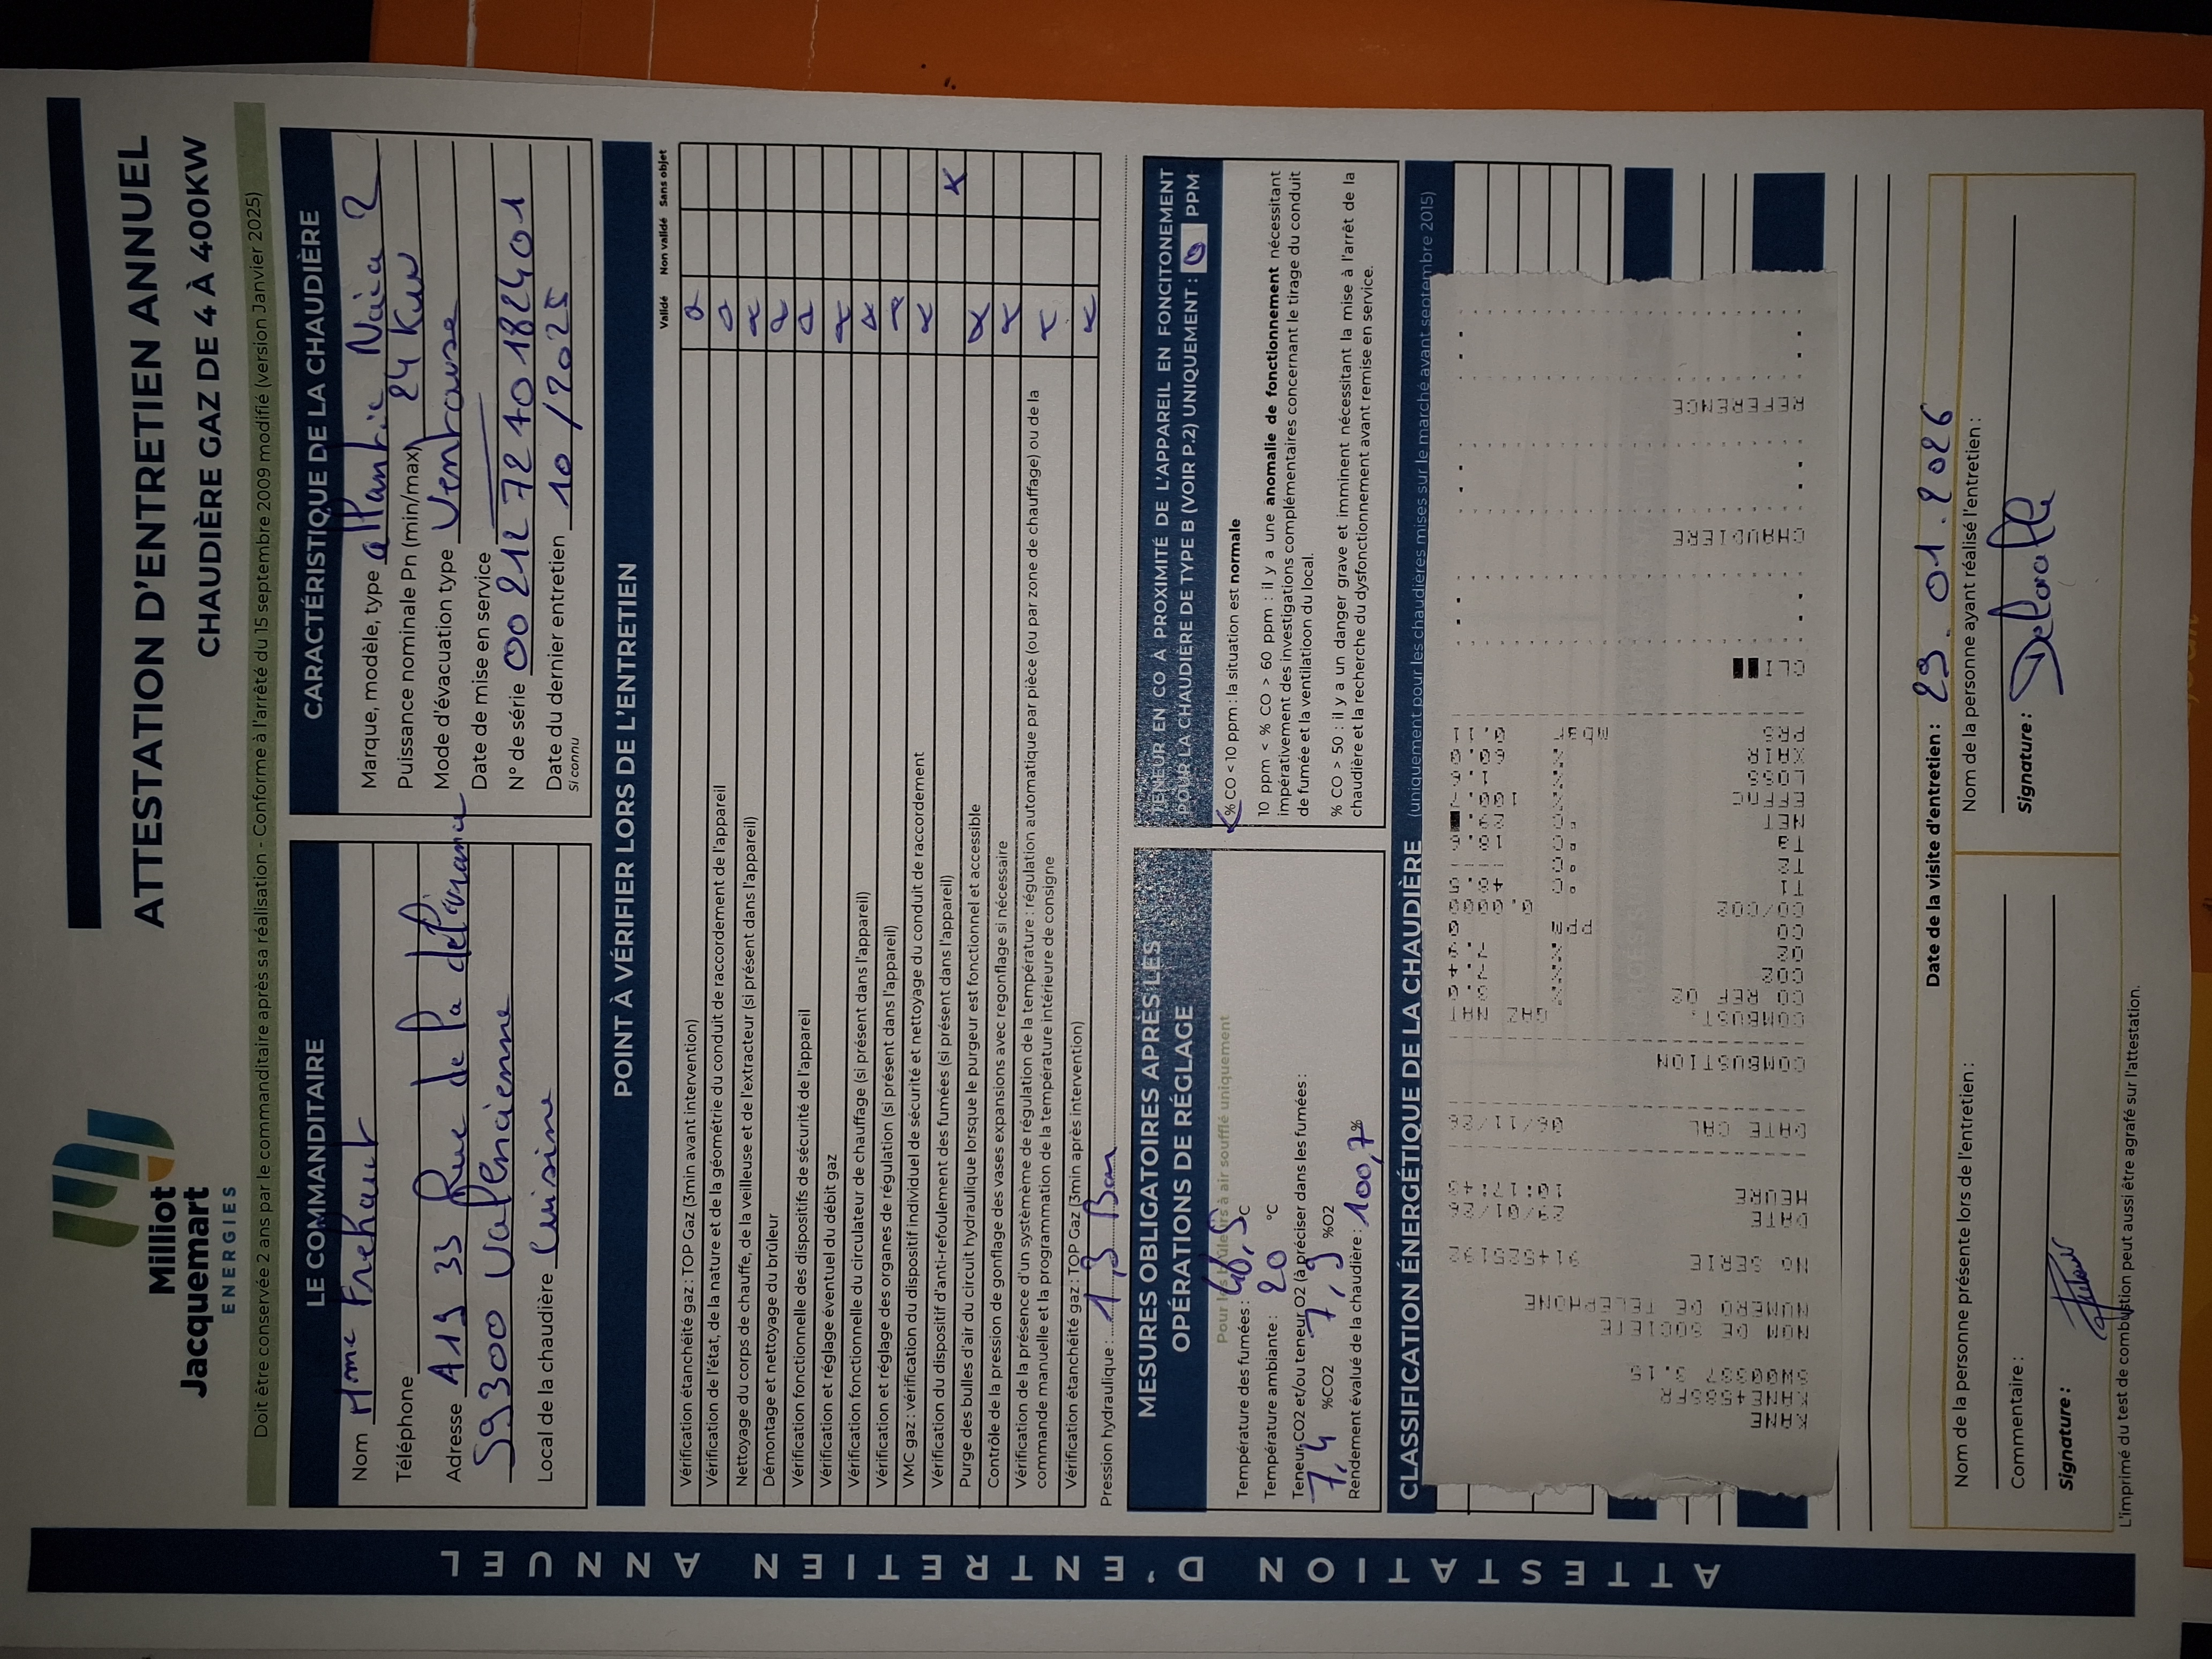 Milliot
Jacquemart
ENERGIES
ATTESTATION D'ENTRETIEN ANNUEL
CHAUDIÈRE GAZ DE 4 À 400KW
Doit être conservée 2 ans par le commanditaire après sa réalisation - Conforme à l'arrêté du 15 septembre 2009 modifié (version Janvier 2025)
ATTESTATION D'ENTRETIEN ANNUEL
LE COMMANDITAIRE
Nom Mme Frehaut
Téléphone
Adresse A19 33 Rue de la délivrance
59300 Valencienne
Local de la chaudière Cuisine
CARACTÉRISTIQUE DE LA CHAUDIÈRE
Marque, modèle, type atlantic Naia 2
Puissance nominale Pn (min/max) 24 Kw
Mode d'évacuation type Ventouse
Date de mise en service
N° de série 002127240182401
Date du dernier entretien 10/2025
Si connu
POINT À VÉRIFIER LORS DE L'ENTRETIEN
Validé Non validé Sans objet
Vérification étanchéité gaz : TOP Gaz (3min avant intervention)
Vérification de l'état, de la nature et de la géométrie du conduit de raccordement de l'appareil
Nettoyage du corps de chauffe, de la veilleuse et de l'extracteur (si présent dans l'appareil)
Démontage et nettoyage du brûleur
Vérification fonctionnelle des dispositifs de sécurité de l'appareil
Vérification et réglage éventuel du débit gaz
Vérification fonctionnelle du circulateur de chauffage (si présent dans l'appareil)
Vérification et réglage des organes de régulation (si présent dans l'appareil)
VMC gaz : vérification du dispositif individuel de sécurité et nettoyage du conduit de raccordement
Vérification du dispositif d'anti-refoulement des fumées (si présent dans l'appareil)
Purge des bulles d'air du circuit hydraulique lorsque le purgeur est fonctionnel et accessible
Contrôle de la pression de gonflage des vases expansions avec regonflage si nécessaire
Vérification de la présence d'un systèmème de régulation de la température : régulation automatique par pièce (ou par zone de chauffage) ou de la
commande manuelle et la programmation de la température intérieure de consigne
Vérification étanchéité gaz : TOP Gaz (3min après intervention)
Pression hydraulique : 1,3 Bar
MESURES OBLIGATOIRES APRÈS LES
OPÉRATIONS DE RÉGLAGE
Pour les brûleurs à air soufflé uniquement
Température des fumées : 46,5 °C
Température ambiante : 20 °C
Teneur CO2 et/ou teneur O2 (à préciser dans les fumées :
7,4 %CO2 7,9 %O2
Rendement évalué de la chaudière : 100,7%
TENEUR EN CO À PROXIMITÉ DE L'APPAREIL EN FONCITONEMENT
POUR LA CHAUDIÈRE DE TYPE B (VOIR P.2) UNIQUEMENT : 0 PPM
% CO < 10 ppm : la situation est normale
10 ppm < % CO > 60 ppm : il y a une anomalie de fonctionnement nécessitant
impérativement des investigations complémentaires concernant le tirage du conduit
de fumée et la ventilatioon du local.
% CO > 50 : il y a un danger grave et imminent nécessitant la mise à l'arrêt de la
chaudière et la recherche du dysfonctionnement avant remise en service.
CLASSIFICATION ÉNERGÉTIQUE DE LA CHAUDIÈRE (uniquement pour les chaudières mises sur le marché avant septembre 2015)
KANE
KANE458SFR
SW00337 3.15
NOM DE SOCIETE
NUMERO DE TELEPHONE
NO SERIE 914525192
DATE 29/01/26
HEURE 10:17:48
DATE CAL 06/11/26
COMBUSTION
COMBUST. GAZ NAT
CO REF O2
CO2 %
O2 %
CO PPM
CO/CO2 0.0000
T1 °C
T2 °C
T3 °C
NET °C
EFFPCI % 100.7
LOSS %
XAIR %
PRS mbar 0.11
CLI
CHAUDIERE
REFERENCE
Date de la visite d'entretien : 29.01.2026
Nom de la personne présente lors de l'entretien :
Commentaire :
Signature :
Nom de la personne ayant réalisé l'entretien :
Signature :
L'imprimé du test de combustion peut aussi être agrafé sur l'attestation.